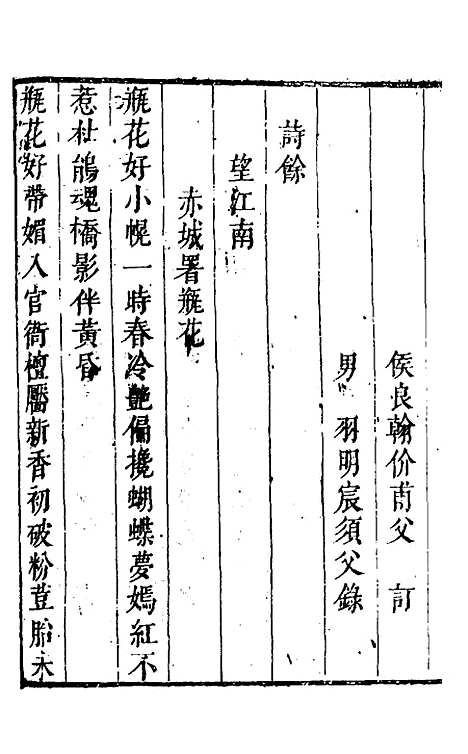 侯良翰价甫父 訂
男 羽明宸須父錄
詩餘
望江南
赤城署瓶花
瓶花好小幌一時春冷艷偏攙蝴蝶夢嫣紅不
惹杜鵑魂橋影伴黃昏
瓶花好帶媚入官衙檀靨新香初破粉荳胎未